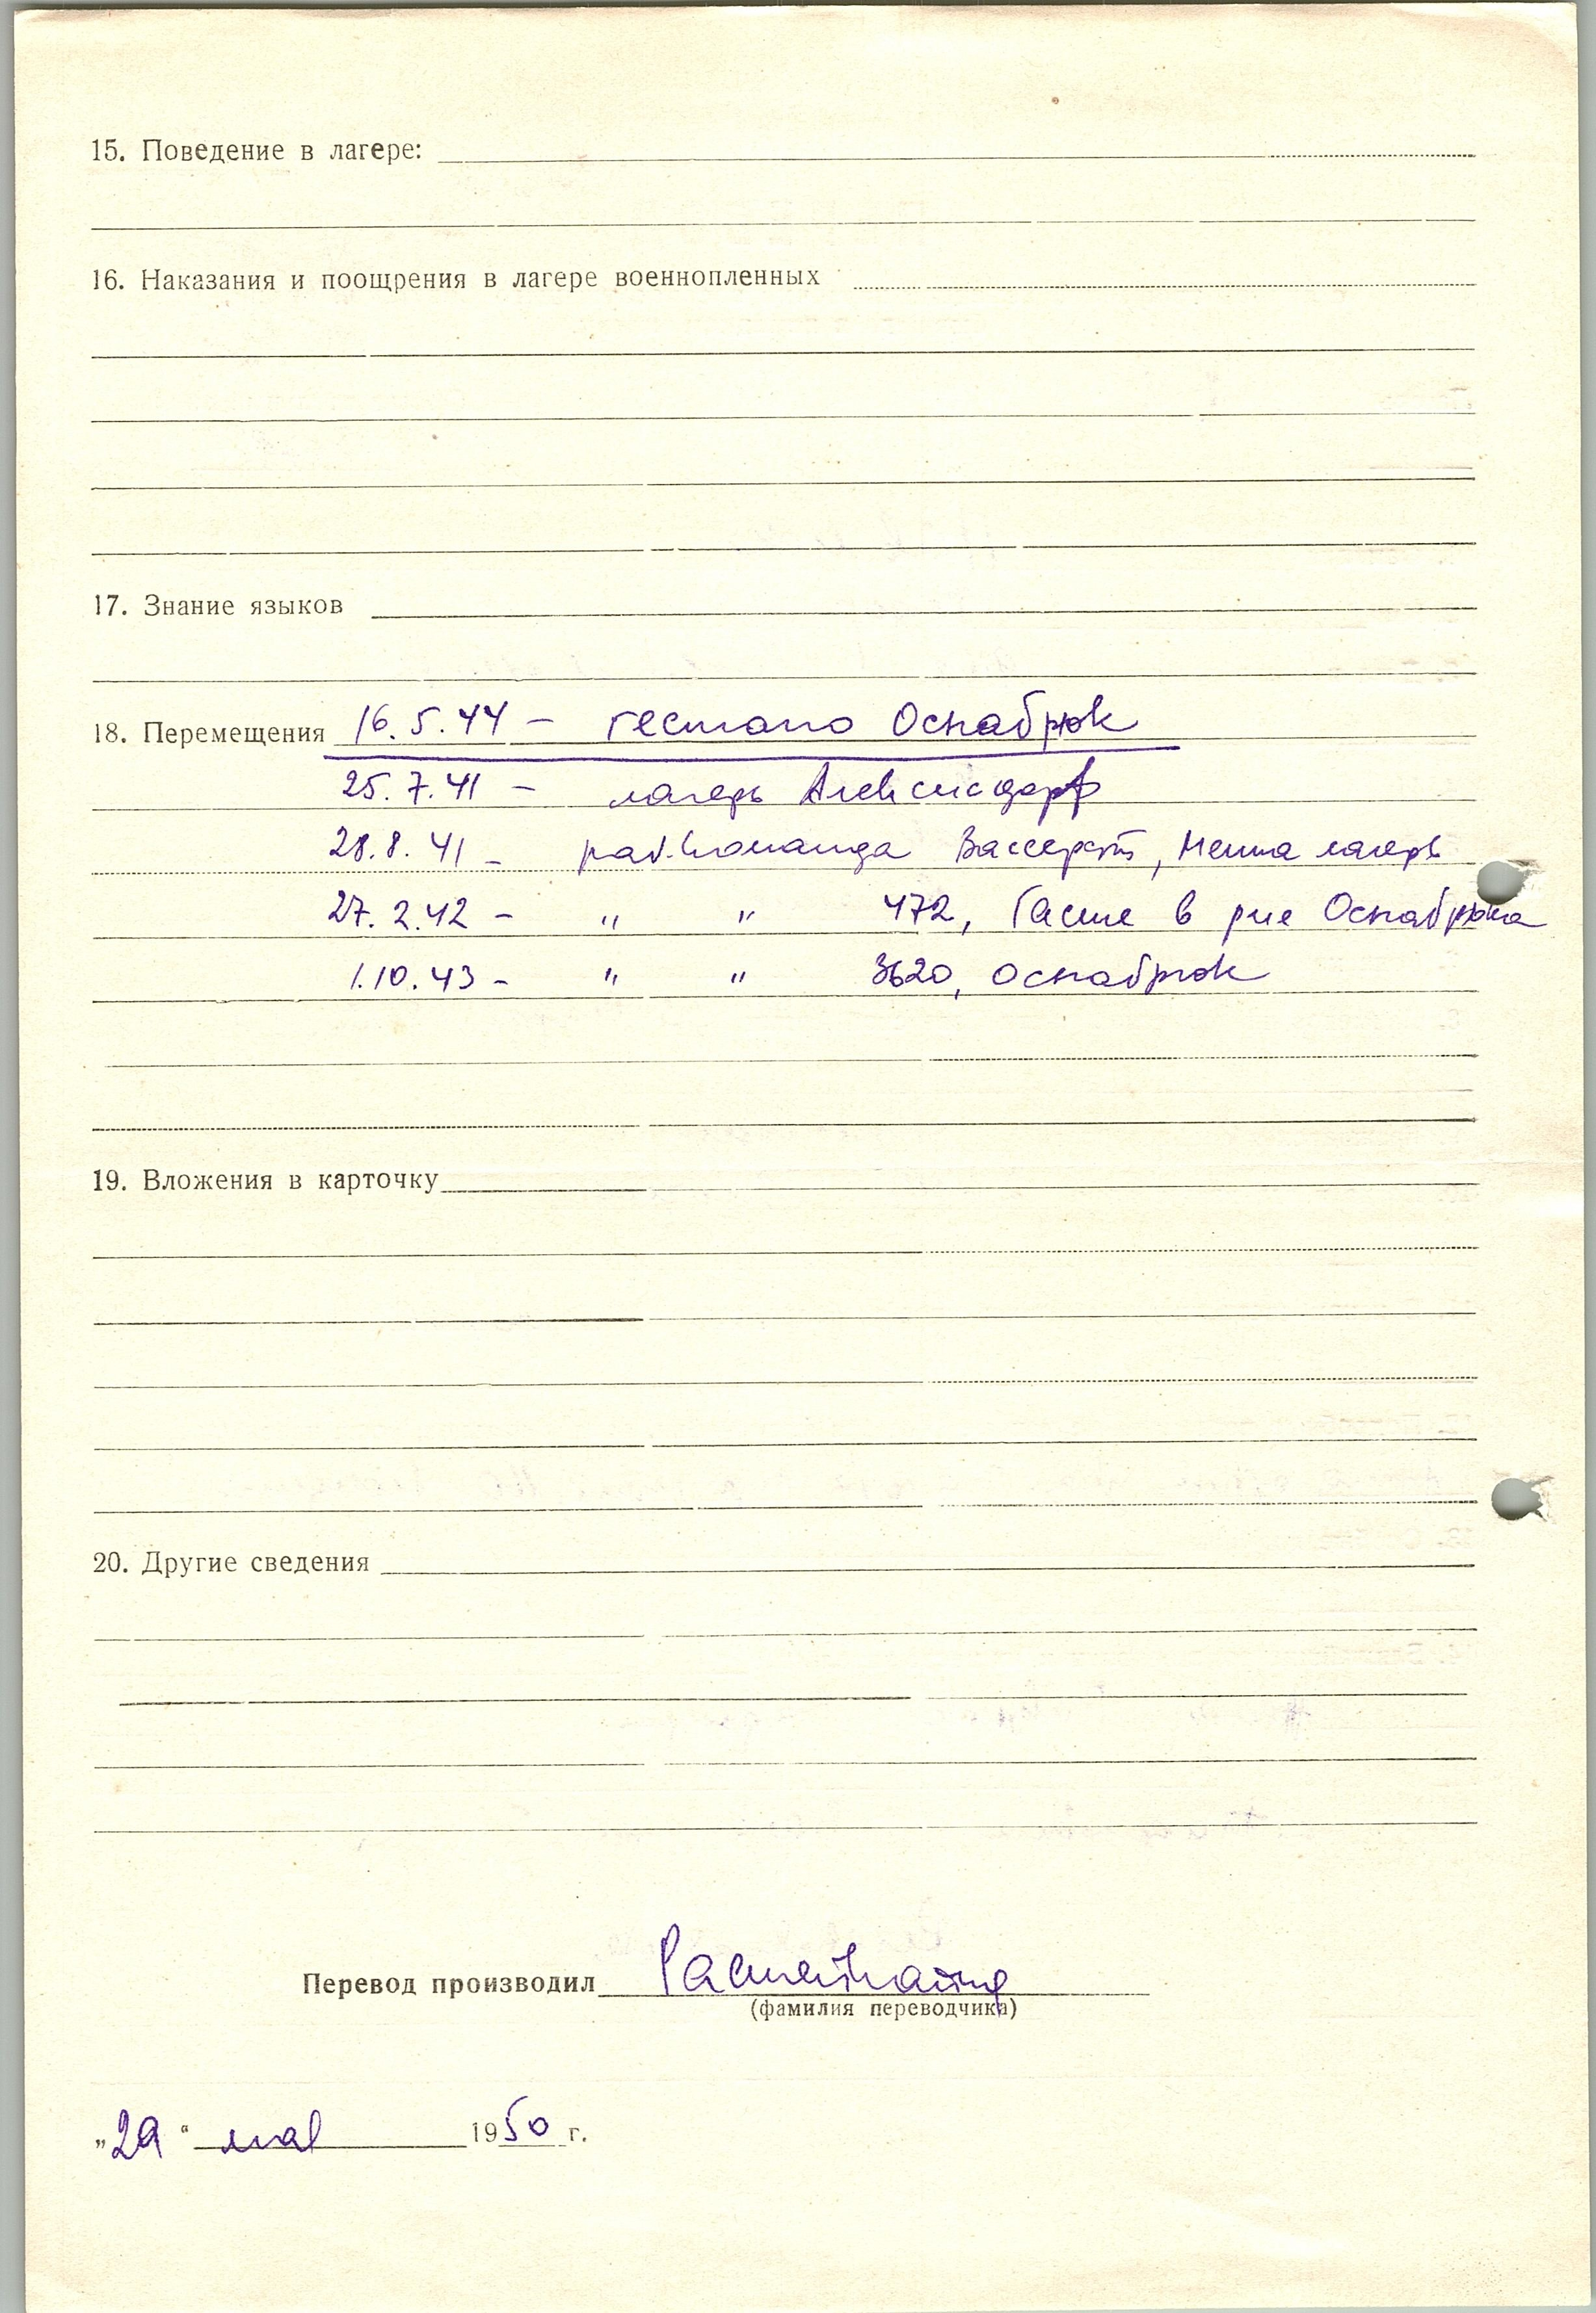 15. Поведение в лагере:
16. Наказания и поощрения в лагере военнопленных
17. Знание языков
18. Перемещения 16.5.44 – гестапо Оснабрюк
25.7.41 – лагерь Алексисдорф
28.8.41 – раб. команда Вассерст, лагерь
27.2.42 – " " 472, Гасте в р-не Оснабрюка
1.10.43 – " " 3620, Оснабрюк
19. Вложения в карточку
20. Другие сведения
Перевод производил
(фамилия переводчика)
„29“ мая 1950 г.